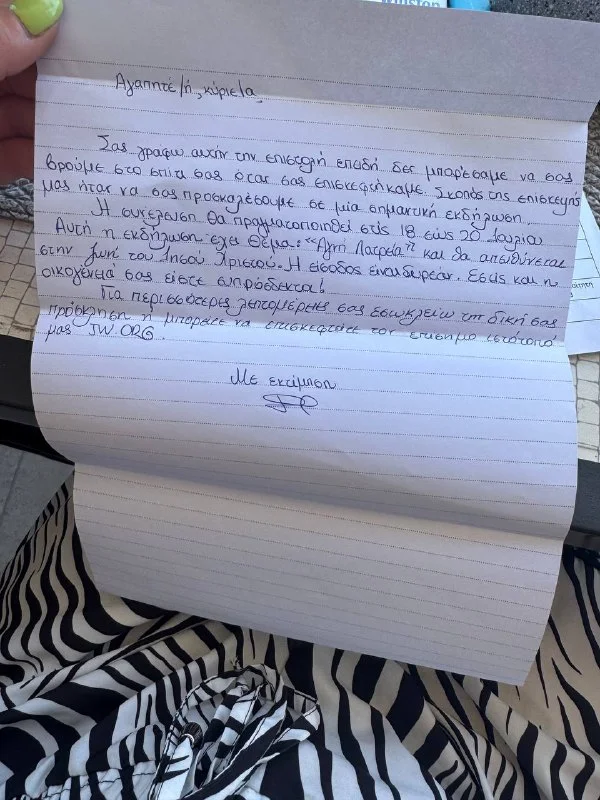 Αγαπητέ/ή, κύριε/α,
Σας γράφω αυτήν την επιστολή επειδή δεν μπορέσαμε να σας
βρούμε στο σπίτι σας όταν σας επισκεφτήκαμε. Σκοπός της επίσκεψής
μας ήταν να σας προσκαλέσουμε σε μια σημαντική εκδήλωση.
Η συνέλευση θα πραγματοποιηθεί στις 18 εώς 20 Ιουλίου
Αυτή η εκδήλωση έχει θέμα: "Αγνή Λατρεία" και θα απευθύνεται
στην ζωή του Ιησού Χριστού. Η είσοδος είναι δωρεάν. Εσείς και η
οικογένειά σας είστε ευπρόσδεκτοι!
Για περισσότερες λεπτομέρειες σας εσωκλείω την δική σας
πρόσκληση ή μπορείτε να επισκεφτείτε τον επίσημο ιστότοπό
μας JW.ORG.
Με εκτίμηση